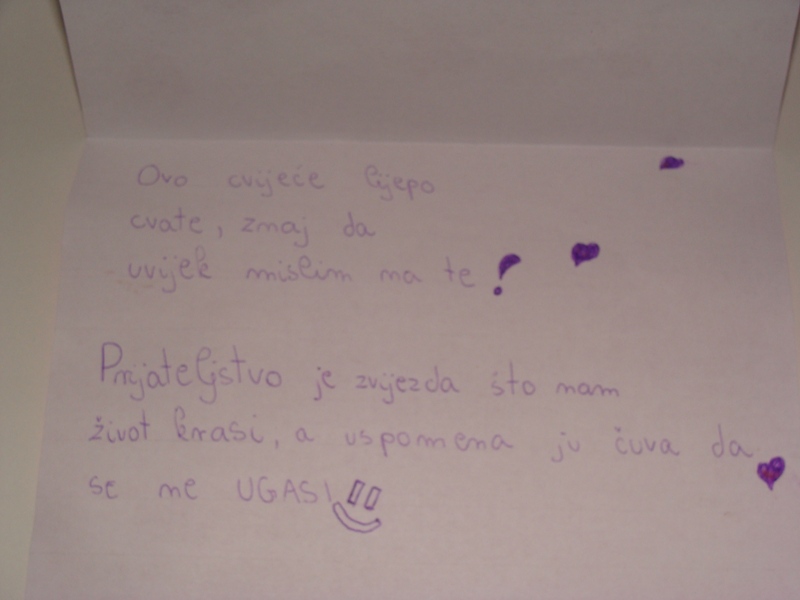 Ovo cvijeće lijepo
cvate, znaj da
uvijek mislim na te!
Prijateljstvo je zvijezda što nam
život krasi, a uspomena ju čuva da
se ne UGASI